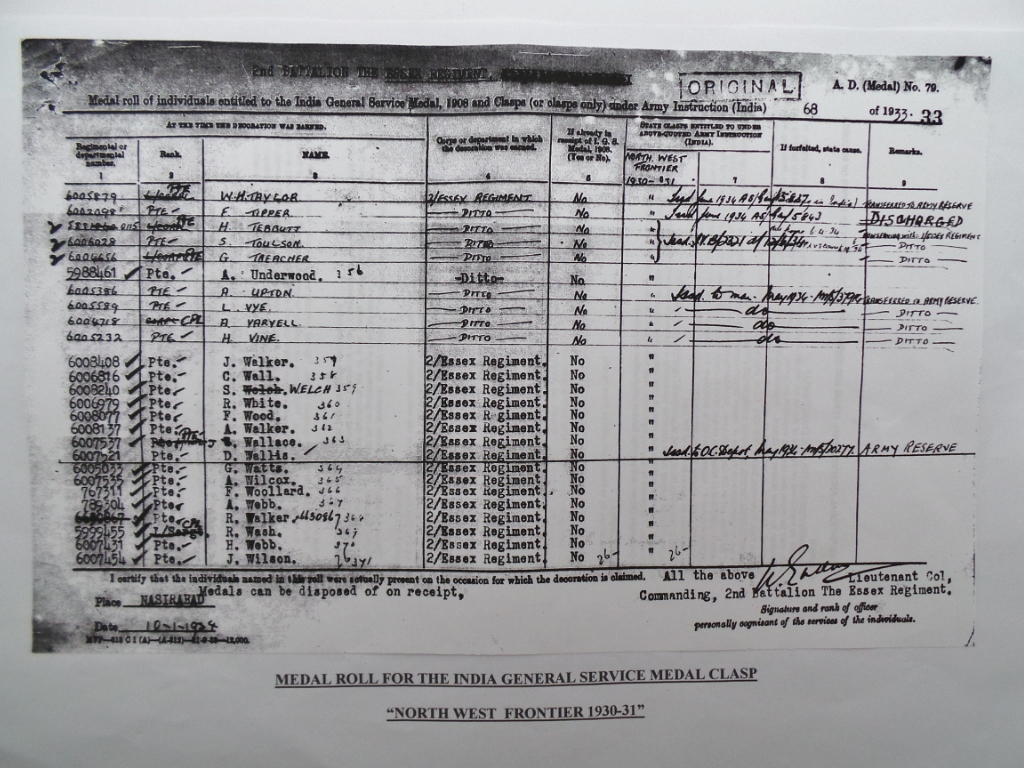 2nd BATTALION THE ESSEX REGIMENT,
ORIGINAL
A. D. (Medal) No. 79.
Medal roll of individuals entitled to the India General Service Medal, 1908 and Clasps (or clasps only) under Army Instruction (India) 68 of 1933. 33
AT THE TIME THE DECORATION WAS EARNED.
Regimental or departmental number. Rank. NAME. Corps or department in which the decoration was earned. If already in receipt of I. G. S. Medal, 1908. (Yes or No). STATE CLASPS ENTITLED TO UNDER ABOVE-QUOTED ARMY INSTRUCTION (INDIA). If forfeited, state cause. Remarks.
NORTH WEST FRONTIER 1930-31
1 2 3 4 5 7 8 9
6005879 PTE W.H. TAYLOR 2/ESSEX REGIMENT No TRANSFERRED TO ARMY RESERVE
PTE F. TIPPER DITTO No DISCHARGED
H. TEBBUTT DITTO No
6006028 PTE S. TOULSON DITTO No DITTO
6004656 PTE G. TREACHER DITTO No DITTO
5988461 Pte. A. Underwood. 356 Ditto No
6005386 PTE A. UPTON DITTO No TRANSFERRED TO ARMY RESERVE
6005589 PTE L. VYE. DITTO No do DITTO
6004718 CPL A. VARYELL DITTO No do DITTO
6005232 PTE H. VINE. DITTO No do DITTO
6008408 Pte. J. Walker. 357 2/Essex Regiment. No "
6006816 Pte. C. Wall. 358 2/Essex Regiment. No "
6008240 Pte. S. Welsh. WELCH 359 2/Essex Regiment. No "
6006979 Pte. R. White. 360 2/Essex Regiment. No "
6008077 Pte. F. Wood. 361 2/Essex Regiment. No "
6008137 Pte. A. Walker. 362 2/Essex Regiment. No "
6007537 PTE Wallace. 363 2/Essex Regiment. No "
6007521 Pte. D. Wallis. 2/Essex Regiment. No " ARMY RESERVE
6005033 Pte. G. Watts. 364 2/Essex Regiment. No "
6007535 Pte. A. Wilcox. 365 2/Essex Regiment. No "
767311 Pte. F. Woollard. 366 2/Essex Regiment. No "
789304 Pte. A. Webb. 367 2/Essex Regiment. No "
Pte. R. Walker. 2/Essex Regiment. No "
5999455 CPL R. Wash. 369 2/Essex Regiment. No "
6007431 Pte. H. Webb. 370 2/Essex Regiment. No "
6007454 Pte. J. Wilson. 2/Essex Regiment. No 26- 26-
I certify that the individuals named in this roll were actually present on the occasion for which the decoration is claimed. All the above
Medals can be disposed of on receipt,
Lieutenant Col,
Commanding, 2nd Battalion The Essex Regiment.
Place NASIRABAD
Signature and rank of officer
personally cognisant of the services of the individuals.
Date 10-1-1934
MEDAL ROLL FOR THE INDIA GENERAL SERVICE MEDAL CLASP
“NORTH WEST FRONTIER 1930-31”